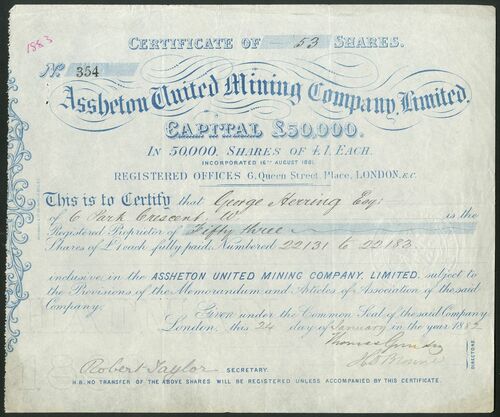 1883
CERTIFICATE OF 53 SHARES.
No. 354
Assheton United Mining Company, Limited.
CAPITAL £50,000.
IN 50,000, SHARES OF £1, EACH.
INCORPORATED 16TH AUGUST 1881.
REGISTERED OFFICES 6, Queen Street Place, LONDON. E.C.
This is to Certify that George Herring Esq:
of 6 Park Crescent, W is the
Registered Proprietor of Fifty three
Shares of £1 each fully paid, Numbered 22131 to 22183
inclusive in the ASSHETON UNITED MINING COMPANY, LIMITED, subject to
the Provisions of the Memorandum and Articles of Association of the said
Company.
Given under the Common Seal of the said Company
London, this 24 day of January in the year 1882
Thomas
DIRECTORS.
Robert Taylor SECRETARY.
N.B. NO TRANSFER OF THE ABOVE SHARES WILL BE REGISTERED UNLESS ACCOMPANIED BY THIS CERTIFICATE.